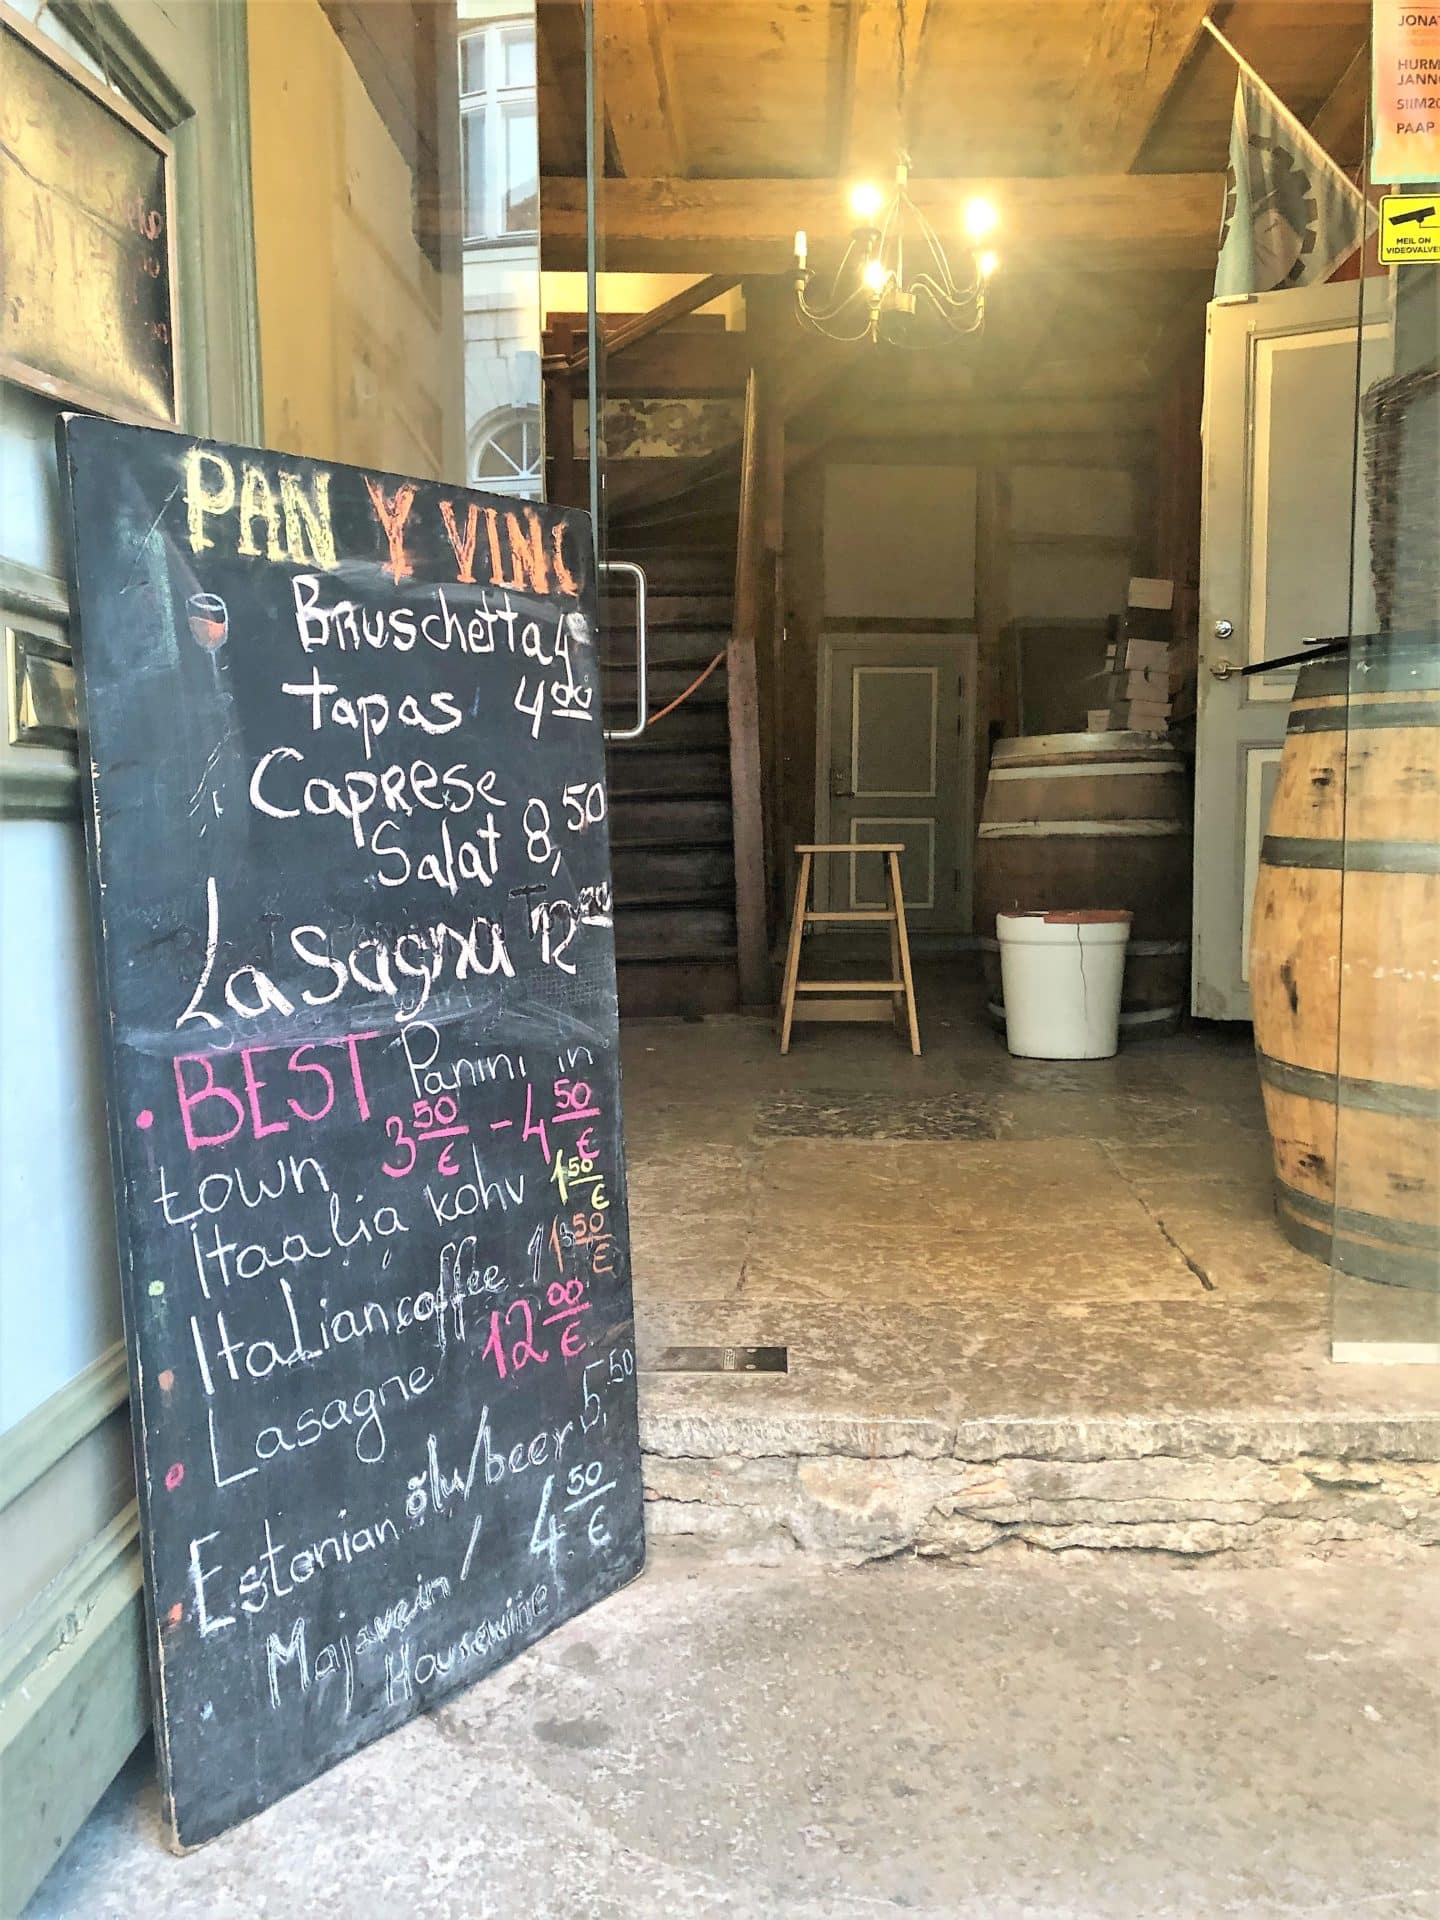 PAN Y VINO
Bruschetta 4
Tapas 4 00
Caprese
Salat 8,50
Lasagna 12
BEST Panini in
town 3 50 € - 4 50 €
Itaalia kohv 1 50 €
Italian coffee 1 50 €
Lasagne 12 00 €
Estonian õlu/beer 5,50
Majavein / 4 50 €
Housewine
HURM
JANN
SIIM20
PAAP
MEIL ON
VIDEOVALVE